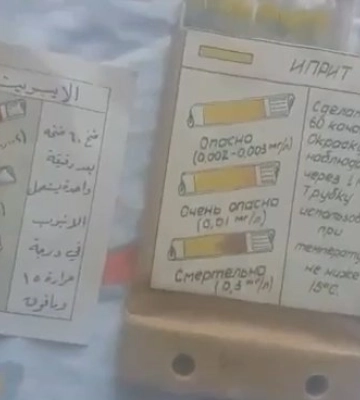 الايبريت
ضخ ٦٠ ضخه
بعد دقيقة
واحدة يستعمل
الانبوب
في درجة
حرارة ١٥
ومافوق
ИПРИТ
Опасно
(0,002-0,003 мг/л)
Очень опасно
(0,01 мг/л)
Смертельно
(0,3 мг/л)
Сделать
60 кача
Окраску
наблюд
через 1 м
Трубку
использов
при
температу
не ниже
15°С.